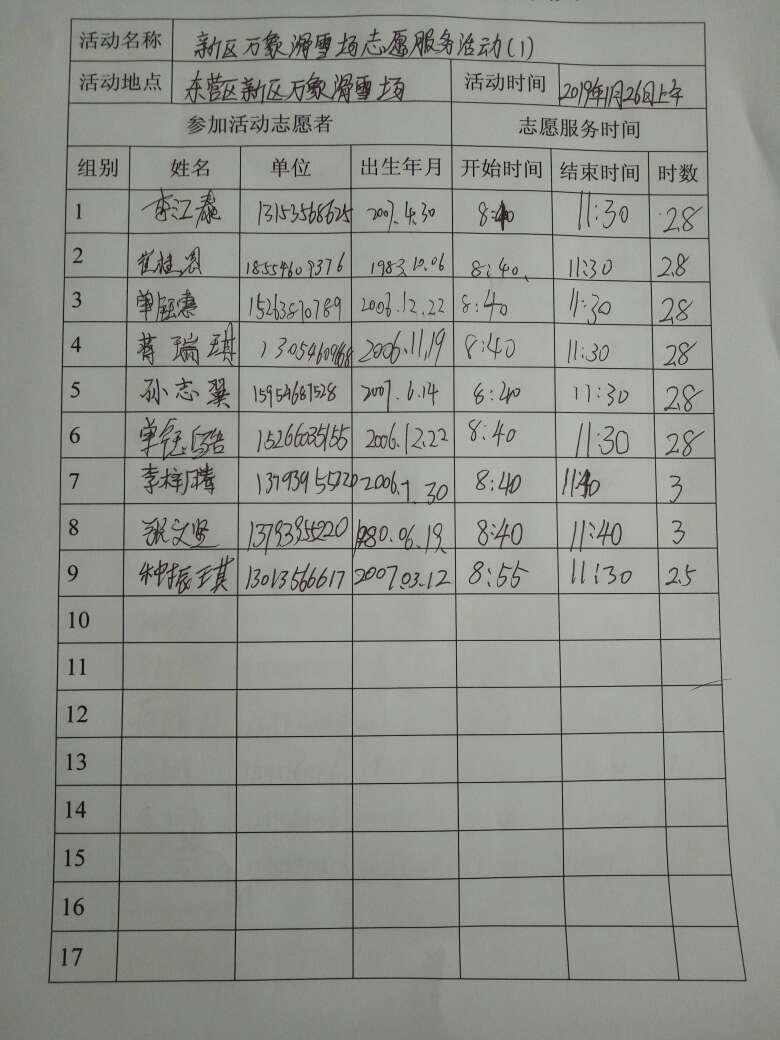 活动名称 新区万象滑雪场志愿服务活动(1)
活动地点 东营区新区万象滑雪场 活动时间 2019年1月26日上午
参加活动志愿者 志愿服务时间
组别 姓名 单位 出生年月 开始时间 结束时间 时数
1 李江泰 13153568625 2007.4.30 8:40 11:30 2.8
2 18554609376 1983.10.06 8:40 11:30 2.8
3 单钰惠 15263870789 2006.12.22 8:40 11:30 2.8
4 蒋瑞琪 13054609168 2006.11.19 8:40 11:30 2.8
5 孙志翼 15954687528 2007.6.14 8:40 11:30 2.8
6 单钰皓 15266035155 2006.12.22 8:40 11:30 2.8
7 李梓腾 13793955220 2006.7.30 8:40 11:40 3
8 张文坚 13793955220 1980.06.19 8:40 11:40 3
9 种振琪 13013566617 2007.03.12 8:55 11:30 2.5
10
11
12
13
14
15
16
17